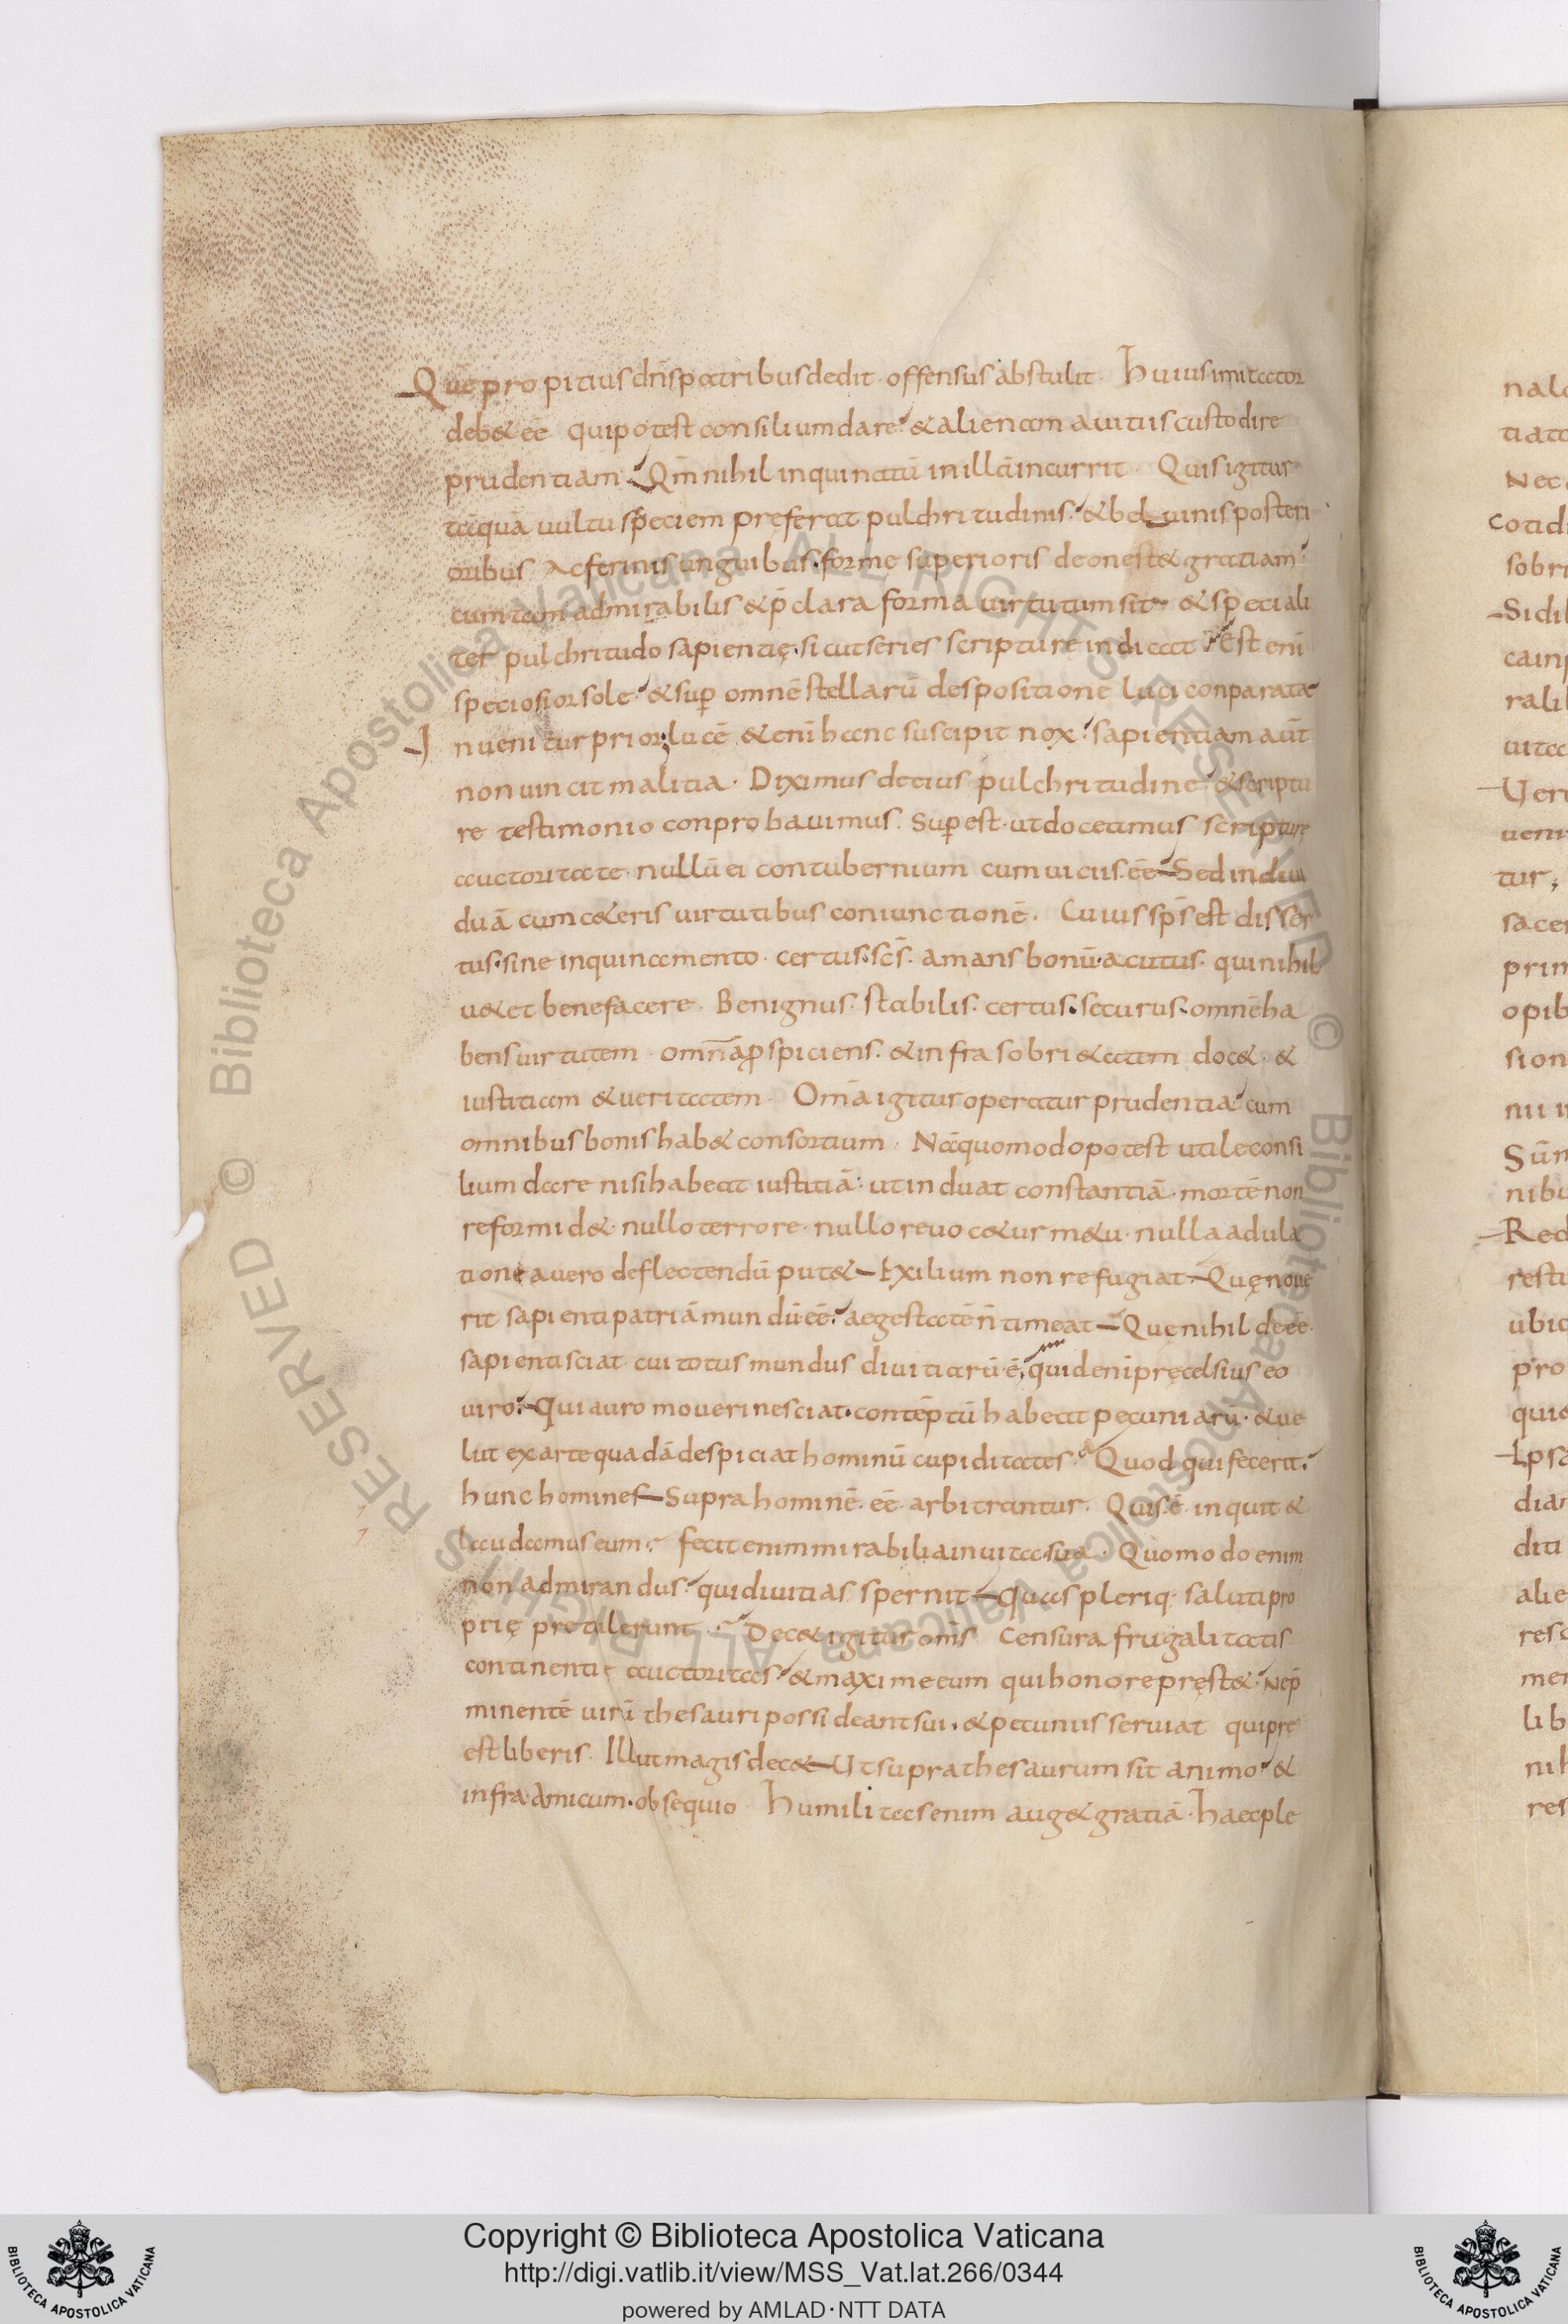 Quẹ propitius dn̄s patribus dedit · offensus abstulit · Huius imitator
deb& ēē qui potest consilium dare & alienam a uitiis custodire
prudentiam Qm̄ nihil inquinatū in illā incurrit · Quis igitur
tāquā uultu speciem preferat pulchritudinis & beluinis posteri
oribus Ac ferinis unguibus · forme superioris deonest& gratiam
cum tam admirabilis & p̄clara forma uirtutum sit & speciali
ter pulchritudo sapientię · sicut series scripture indicat Est enī
speciosior sole & sup̄ omnē stellarū despositione luci conparata
Inuenitur prior lucē & enī hanc suscipit nox sapientiam aūt
non uincit malitia · Diximus de eius pulchritudine & scriptu
re testimonio conprobauimus · Sup̄est · ut doceamus scripturę
auctoritate nullū ei contubernium cum uiciis · ēē Sed indiui
duā cum c&eris uirtutibus coniunctionē · Cuius sp̄s est disser
tus · sine inquinamento · certus · sc̄s · amans bonū · acutus · qui nihil
u&et benefacere · Benignus · stabilis · certus · securus · omnē ha
bens uirtutem · omn̄a p̄spiciens · & infra sobri&atem doc& · &
iustitiam & ueritatem · Om̄a igitur operatur prudentia cum
omnibus bonis hab& consortium · Nā quomodo potest utile consi
lium dare nisi habeat iustitiā · ut induat constantiā · mortē non
reformid& · nullo terrore · nullo reuoc&ur m&u · nulla adula
tione a uero deflectendū put& Exilium non refugiat Quę noue
rit sapienti patriā mundū ēē aegestatē n̄ timeat Que nihil deēē
sapienti sciat · cui totus mundus diuitiarū · ē · quid enī pręcelsius eo
uiro Qui auro moueri nesciat · contēptū habeat pecuniarū · & ue
lut ex arte quadā despiciat hominū cupiditates Quod qui fecerit
hunc homines Supra hominē · ēē · arbitrantur · Quis · ē · inquit &
laudamus eum · fecit enim mirabilia in uita sua · Quomodo enim
non admirandus qui diuitias spernit Quas pleriq · saluti pro
prię protulerunt Dec& igitur om̄s Censura frugalitatis
continentię auctoritas & maxime eum qui honore pręst& Ne p̄
minentē uirū thesauri possideant sui · & pecuniis seruiat qui prę
est liberis · Illut magis dec& Ut supra thesaurum sit animo &
infra Amicum · obsequio · Humilitas enim aug& gratiā · haec ple
nalo
tiatc
Nec
cotid
sobri
Sidi
cain
rali
uitcc
Uer
ueni
tur
sace
prin
opib
sion
nii
Sūn
nibu
Red
resti
ubic
pro
quic
Ipsa
dian
diti
alie
resc
men
lib
nih
res
Copyright © Biblioteca Apostolica Vaticana
http://digi.vatlib.it/view/MSS_Vat.lat.266/0344
powered by AMLAD·NTT DATA
BIBLIOTECA APOSTOLICA VATICANA
BIBLIOTECA APOSTOLICA VATICANA
© Biblioteca Apostolica Vaticana ALL RIGHTS RESERVED © Biblioteca Apostolica Vaticana ALL RIGHTS RESERVED